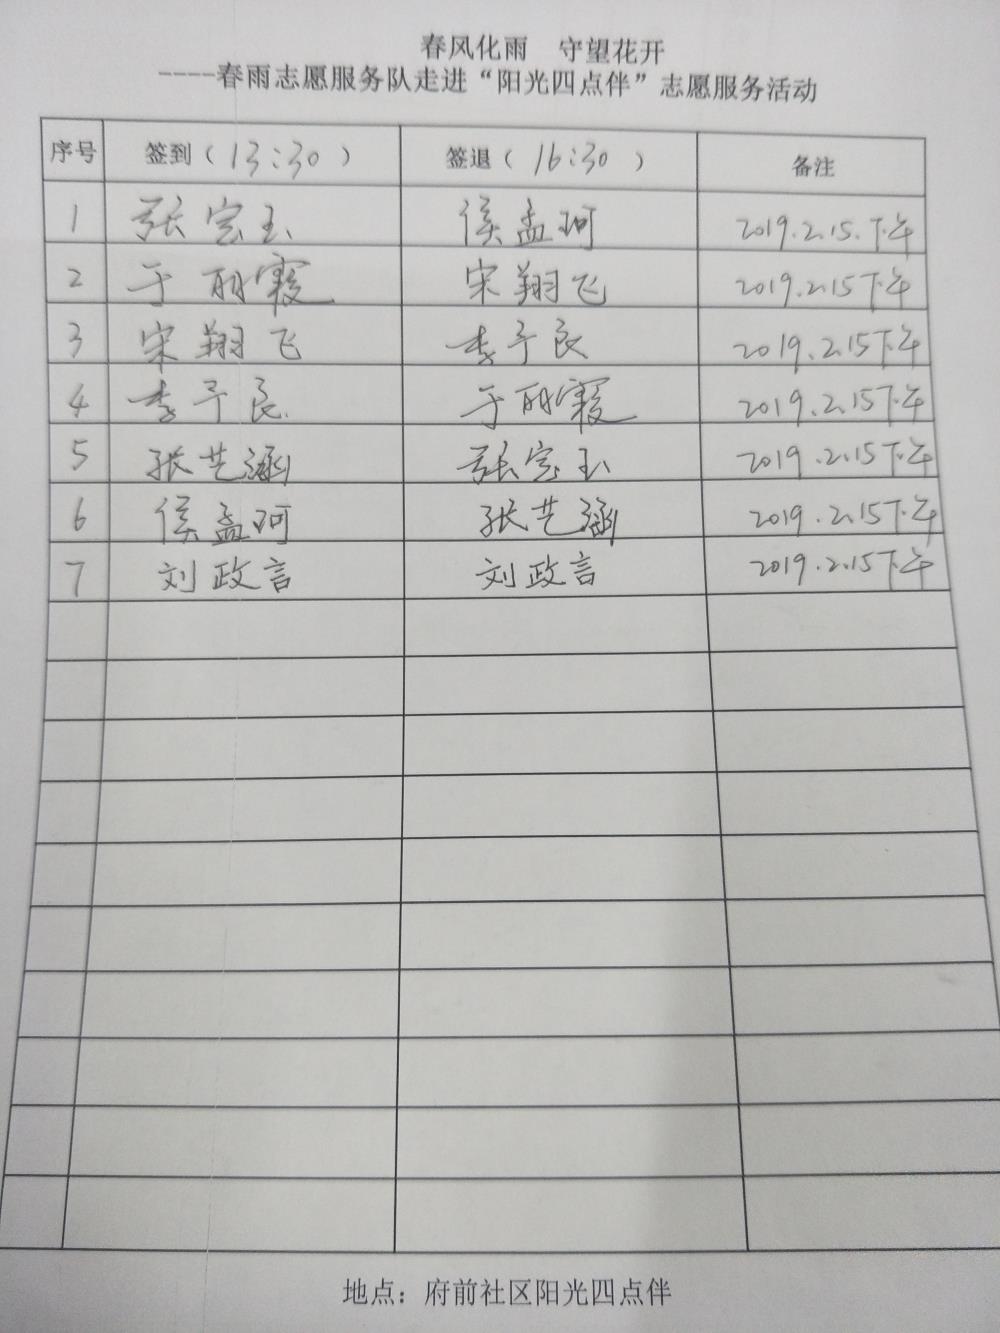 春风化雨 守望花开
----春雨志愿服务队走进“阳光四点伴”志愿服务活动
序号 签到（13:30） 签退（16:30） 备注
1 张宗玉 侯孟珂 2019.2.15.下午
2 于丽霞 宋翔飞 2019.2.15下午
3 宋翔飞 李子良 2019.2.15下午
4 李子良 于丽霞 2019.2.15下午
5 张艺涵 张宗玉 2019.2.15下午
6 侯孟珂 张艺涵 2019.2.15下午
7 刘政言 刘政言 2019.2.15下午
地点：府前社区阳光四点伴